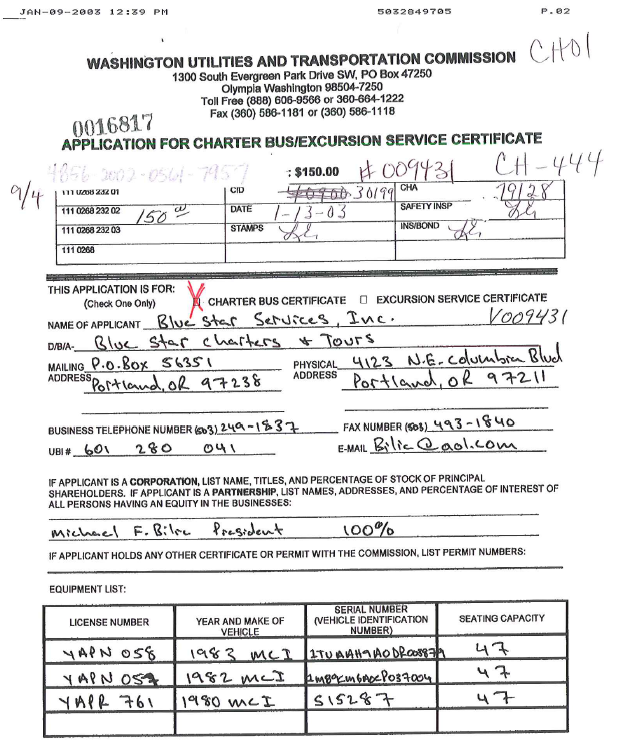 JAN-09-2003 12:39 PM 5032849705 P.02
WASHINGTON UTILITIES AND TRANSPORTATION COMMISSION CH01
1300 South Evergreen Park Drive SW, PO Box 47250
Olympia Washington 98504-7250
Toll Free (888) 606-9566 or 360-664-1222
Fax (360) 586-1181 or (360) 586-1118
0016817
APPLICATION FOR CHARTER BUS/EXCURSION SERVICE CERTIFICATE
: $150.00 # 009431 CH-444
9/4
111 0268 232 01 CID 30199 CHA 79128
111 0268 232 02 150 00 DATE 1-13-03 SAFETY INSP
111 0268 232 03 STAMPS INS/BOND
111 0268
THIS APPLICATION IS FOR:
(Check One Only) X CHARTER BUS CERTIFICATE □ EXCURSION SERVICE CERTIFICATE
NAME OF APPLICANT Blue Star Services, Inc. V009431
D/B/A- Blue Star Charters & Tours
MAILING ADDRESS P.O. Box 56351 PHYSICAL ADDRESS 4123 N.E. Columbia Blvd
Portland, OR 97238 Portland, OR 97211
BUSINESS TELEPHONE NUMBER (503) 249-1837 FAX NUMBER (503) 493-1840
UBI # 601 280 041 E-MAIL Bilic@aol.com
IF APPLICANT IS A CORPORATION, LIST NAME, TITLES, AND PERCENTAGE OF STOCK OF PRINCIPAL
SHAREHOLDERS. IF APPLICANT IS A PARTNERSHIP, LIST NAMES, ADDRESSES, AND PERCENTAGE OF INTEREST OF
ALL PERSONS HAVING AN EQUITY IN THE BUSINESSES:
Michael F. Bilic President 100%
IF APPLICANT HOLDS ANY OTHER CERTIFICATE OR PERMIT WITH THE COMMISSION, LIST PERMIT NUMBERS:
EQUIPMENT LIST:
LICENSE NUMBER YEAR AND MAKE OF VEHICLE SERIAL NUMBER (VEHICLE IDENTIFICATION NUMBER) SEATING CAPACITY
YAPN 058 1983 MCI 47
YAPN 1982 MCI 47
YAPR 761 1980 MCI S15287 47